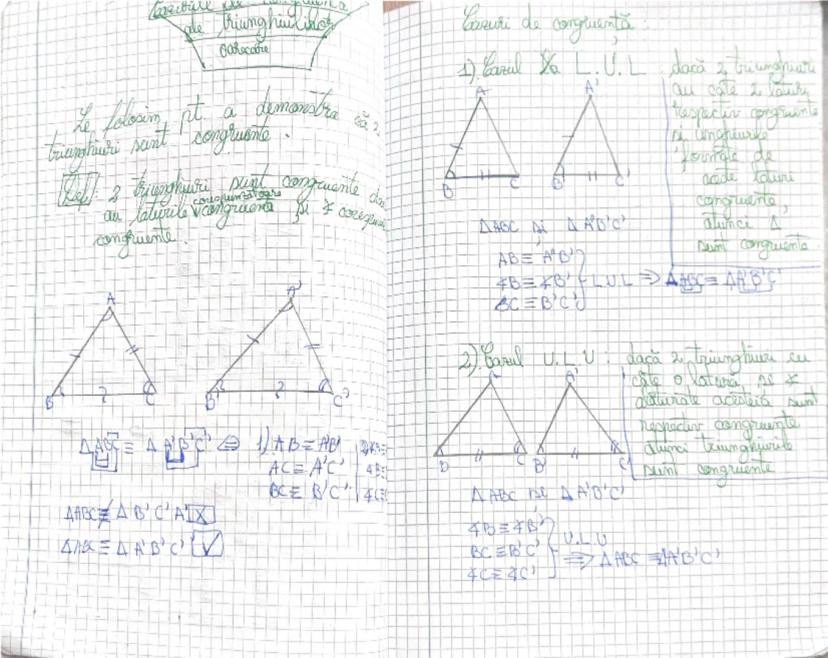 Cazurile de congruență
ale triunghiurilor
oarecare
Le folosim pt. a demonstra că 2
triunghiuri sunt congruente.
Def: 2 triunghiuri sunt congruente dacă
au laturile corespunzătoare congruente și ∢
congruente.
A
B
C
A'
B'
C'
ΔABC ≡ ΔA'B'C' ⇔ 1) AB ≡ A'B'
AC ≡ A'C'
BC ≡ B'C'
ΔABC ≢ ΔB'C'A' X
ΔABC ≡ ΔA'B'C' ✓
Cazuri de congruență:
1) Cazul L.U.L : dacă 2 triunghiuri
au câte 2 laturi
respectiv congruente
și unghiurile
formate de
aceste laturi
congruente,
atunci Δ
sunt congruente.
A
B
C
A'
B'
C'
ΔABC și ΔA'B'C'
AB ≡ A'B'
∢B ≡ ∢B' } L.U.L ⇒ ΔABC ≡ ΔA'B'C'
BC ≡ B'C'
2) Cazul U.L.U : dacă 2 triunghiuri au
câte o latură și ∢
alăturate acesteia sunt
respectiv congruente
atunci triunghiurile
sunt congruente
A
B
C
A'
B'
C'
ΔABC și ΔA'B'C'
∢B ≡ ∢B'
BC ≡ B'C' } U.L.U ⇒ ΔABC ≡ ΔA'B'C'
∢C ≡ ∢C'